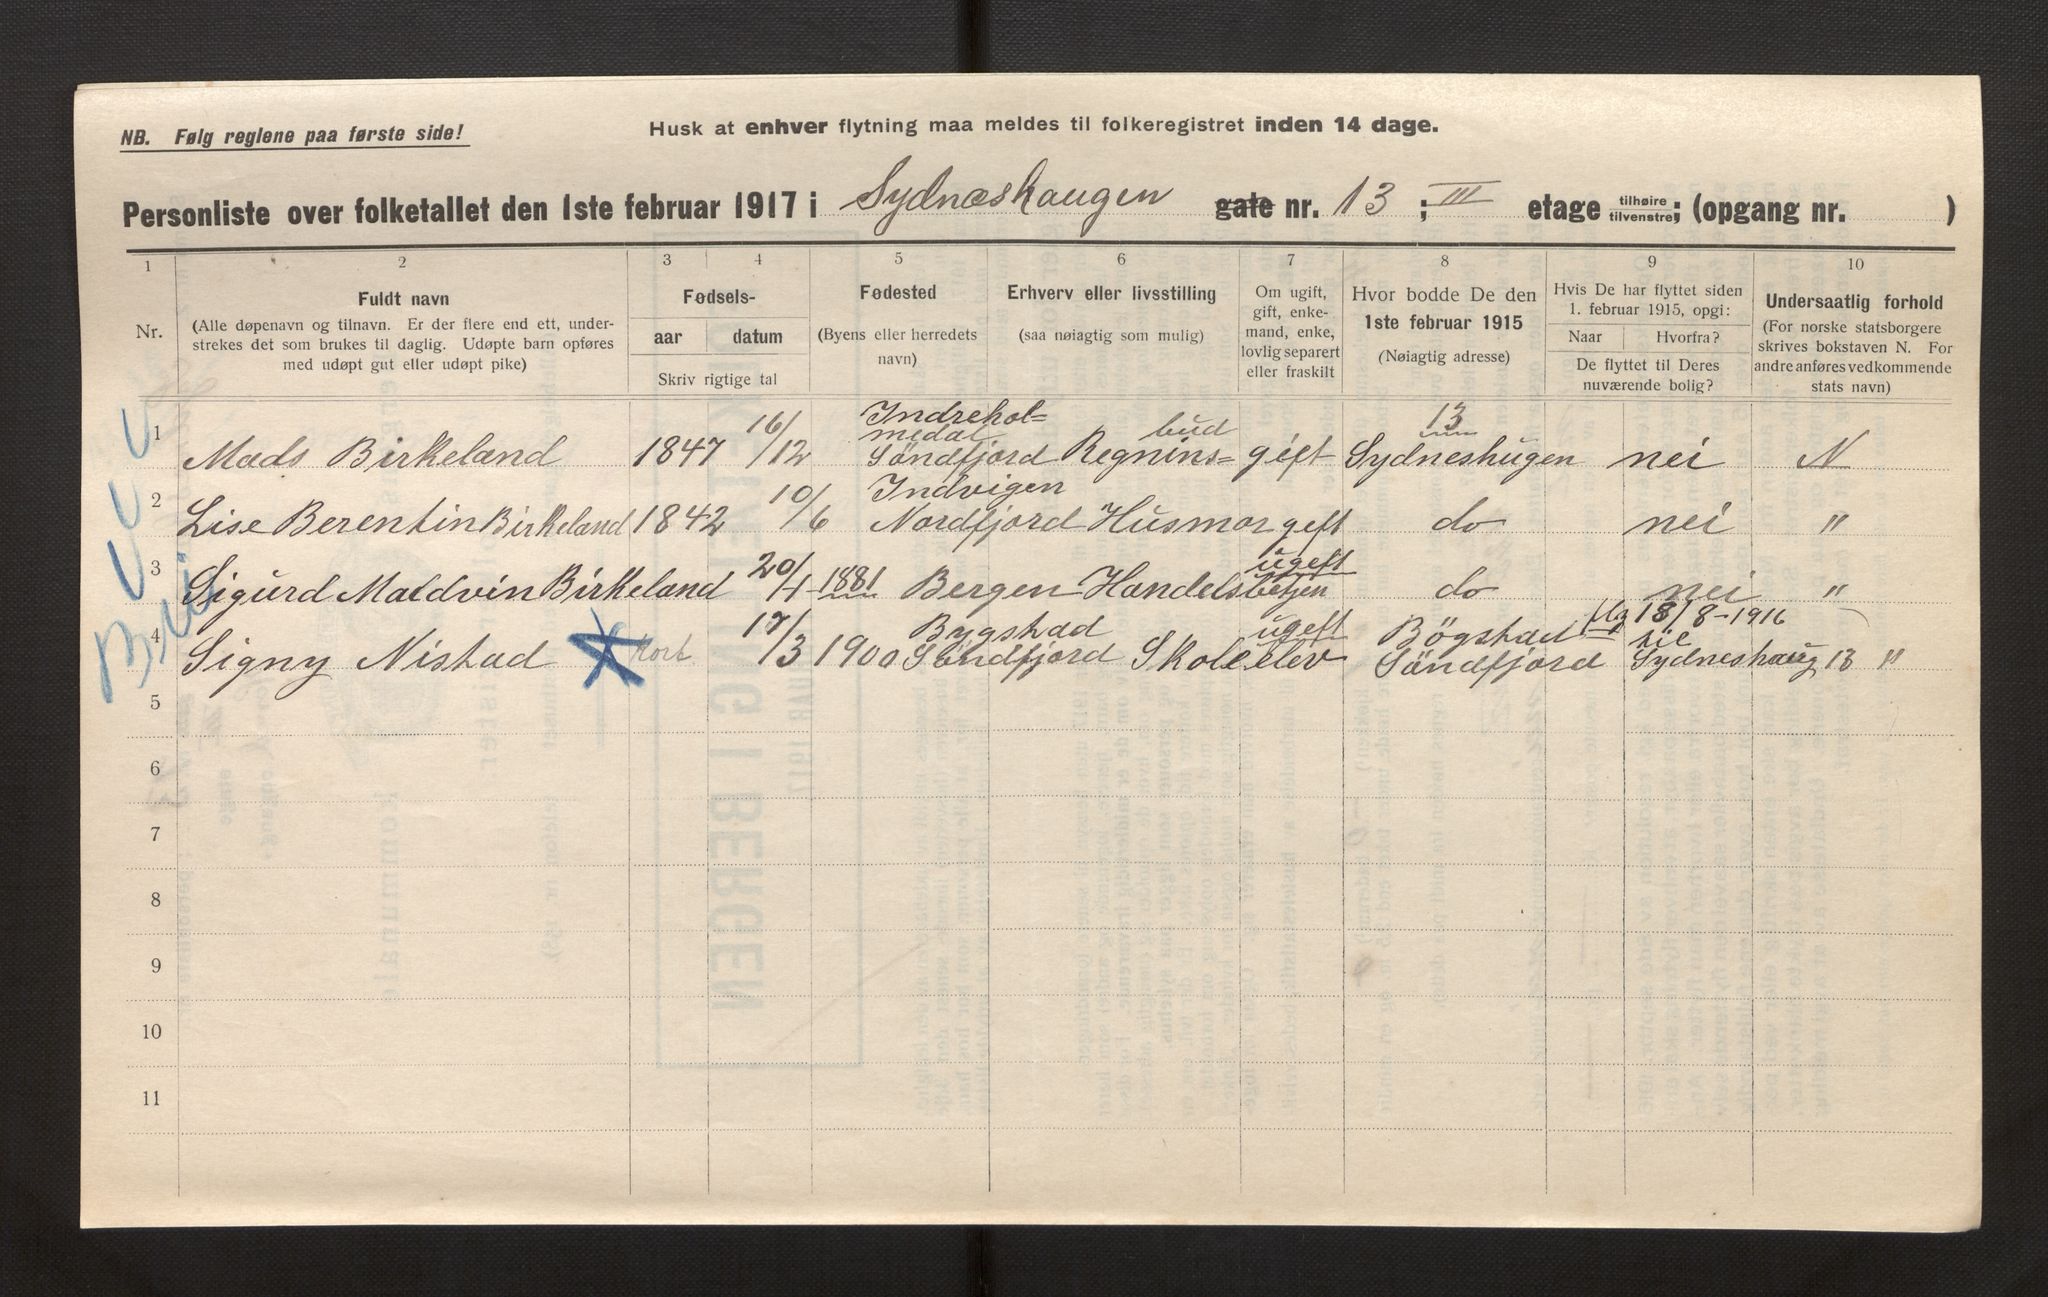 NB. Følg reglene paa første side!
Husk at enhver flytning maa meldes til folkeregistret inden 14 dage.
Personliste over folketallet den 1ste februar 1917 i Sydnæshaugen gate nr. 13 ; III etage tilhøire tilvenstre; (opgang nr. )
1 2 3 4 5 6 7 8 9 10
Nr.
Fuldt navn
(Alle døpenavn og tilnavn. Er der flere end ett, under-
strekes det som brukes til daglig. Udøpte barn opføres
med udøpt gut eller udøpt pike)
Fødsels-
aar datum
Skriv rigtige tal
Fødested
(Byens eller herredets
navn)
Erhverv eller livsstilling
(saa nøiagtig som mulig)
Om ugift,
gift, enke-
mand, enke,
lovlig separert
eller fraskilt
Hvor bodde De den
1ste februar 1915
(Nøiagtig adresse)
Hvis De har flyttet siden
1. februar 1915, opgi:
Naar Hvorfra?
De flyttet til Deres
nuværende bolig?
Undersaatlig forhold
(For norske statsborgere
skrives bokstaven N. For
andre anføres vedkommende
stats navn)
1 Mads Birkeland 1847 16/12 Indrehol=
medal
Söndfjord Regnins= bud gift 13 Sydneshugen nei N
2 Lise Berentin Birkeland 1842 10/6 Indvigen
Nordfjord Husmor geft do nei "
3 Sigurd Maldvin Birkeland 20/4 1881 Bergen Handelsbetjen ugeft do nei "
4 Signy Nistad Kort 17/3 1900 Bygstad
Söndfjord Skoleelev ugeft Bögstad
Söndfjord 18/8-1916
Sydneshaug 13 "
5
6
7
8
9
10
11